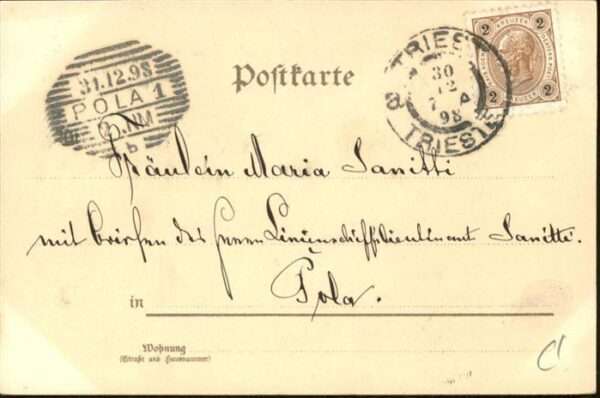 31.12.98
POLA 1
TRIEST
30
12
98
TRIESTE
2 KREUZER 2
2 2
Postkarte
Fräulein Maria Sanitti
mit Briefen des Herrn Linienschiffslieutenant Sanitti.
Pola.
in
Wohnung
(Straße und Hausnummer)